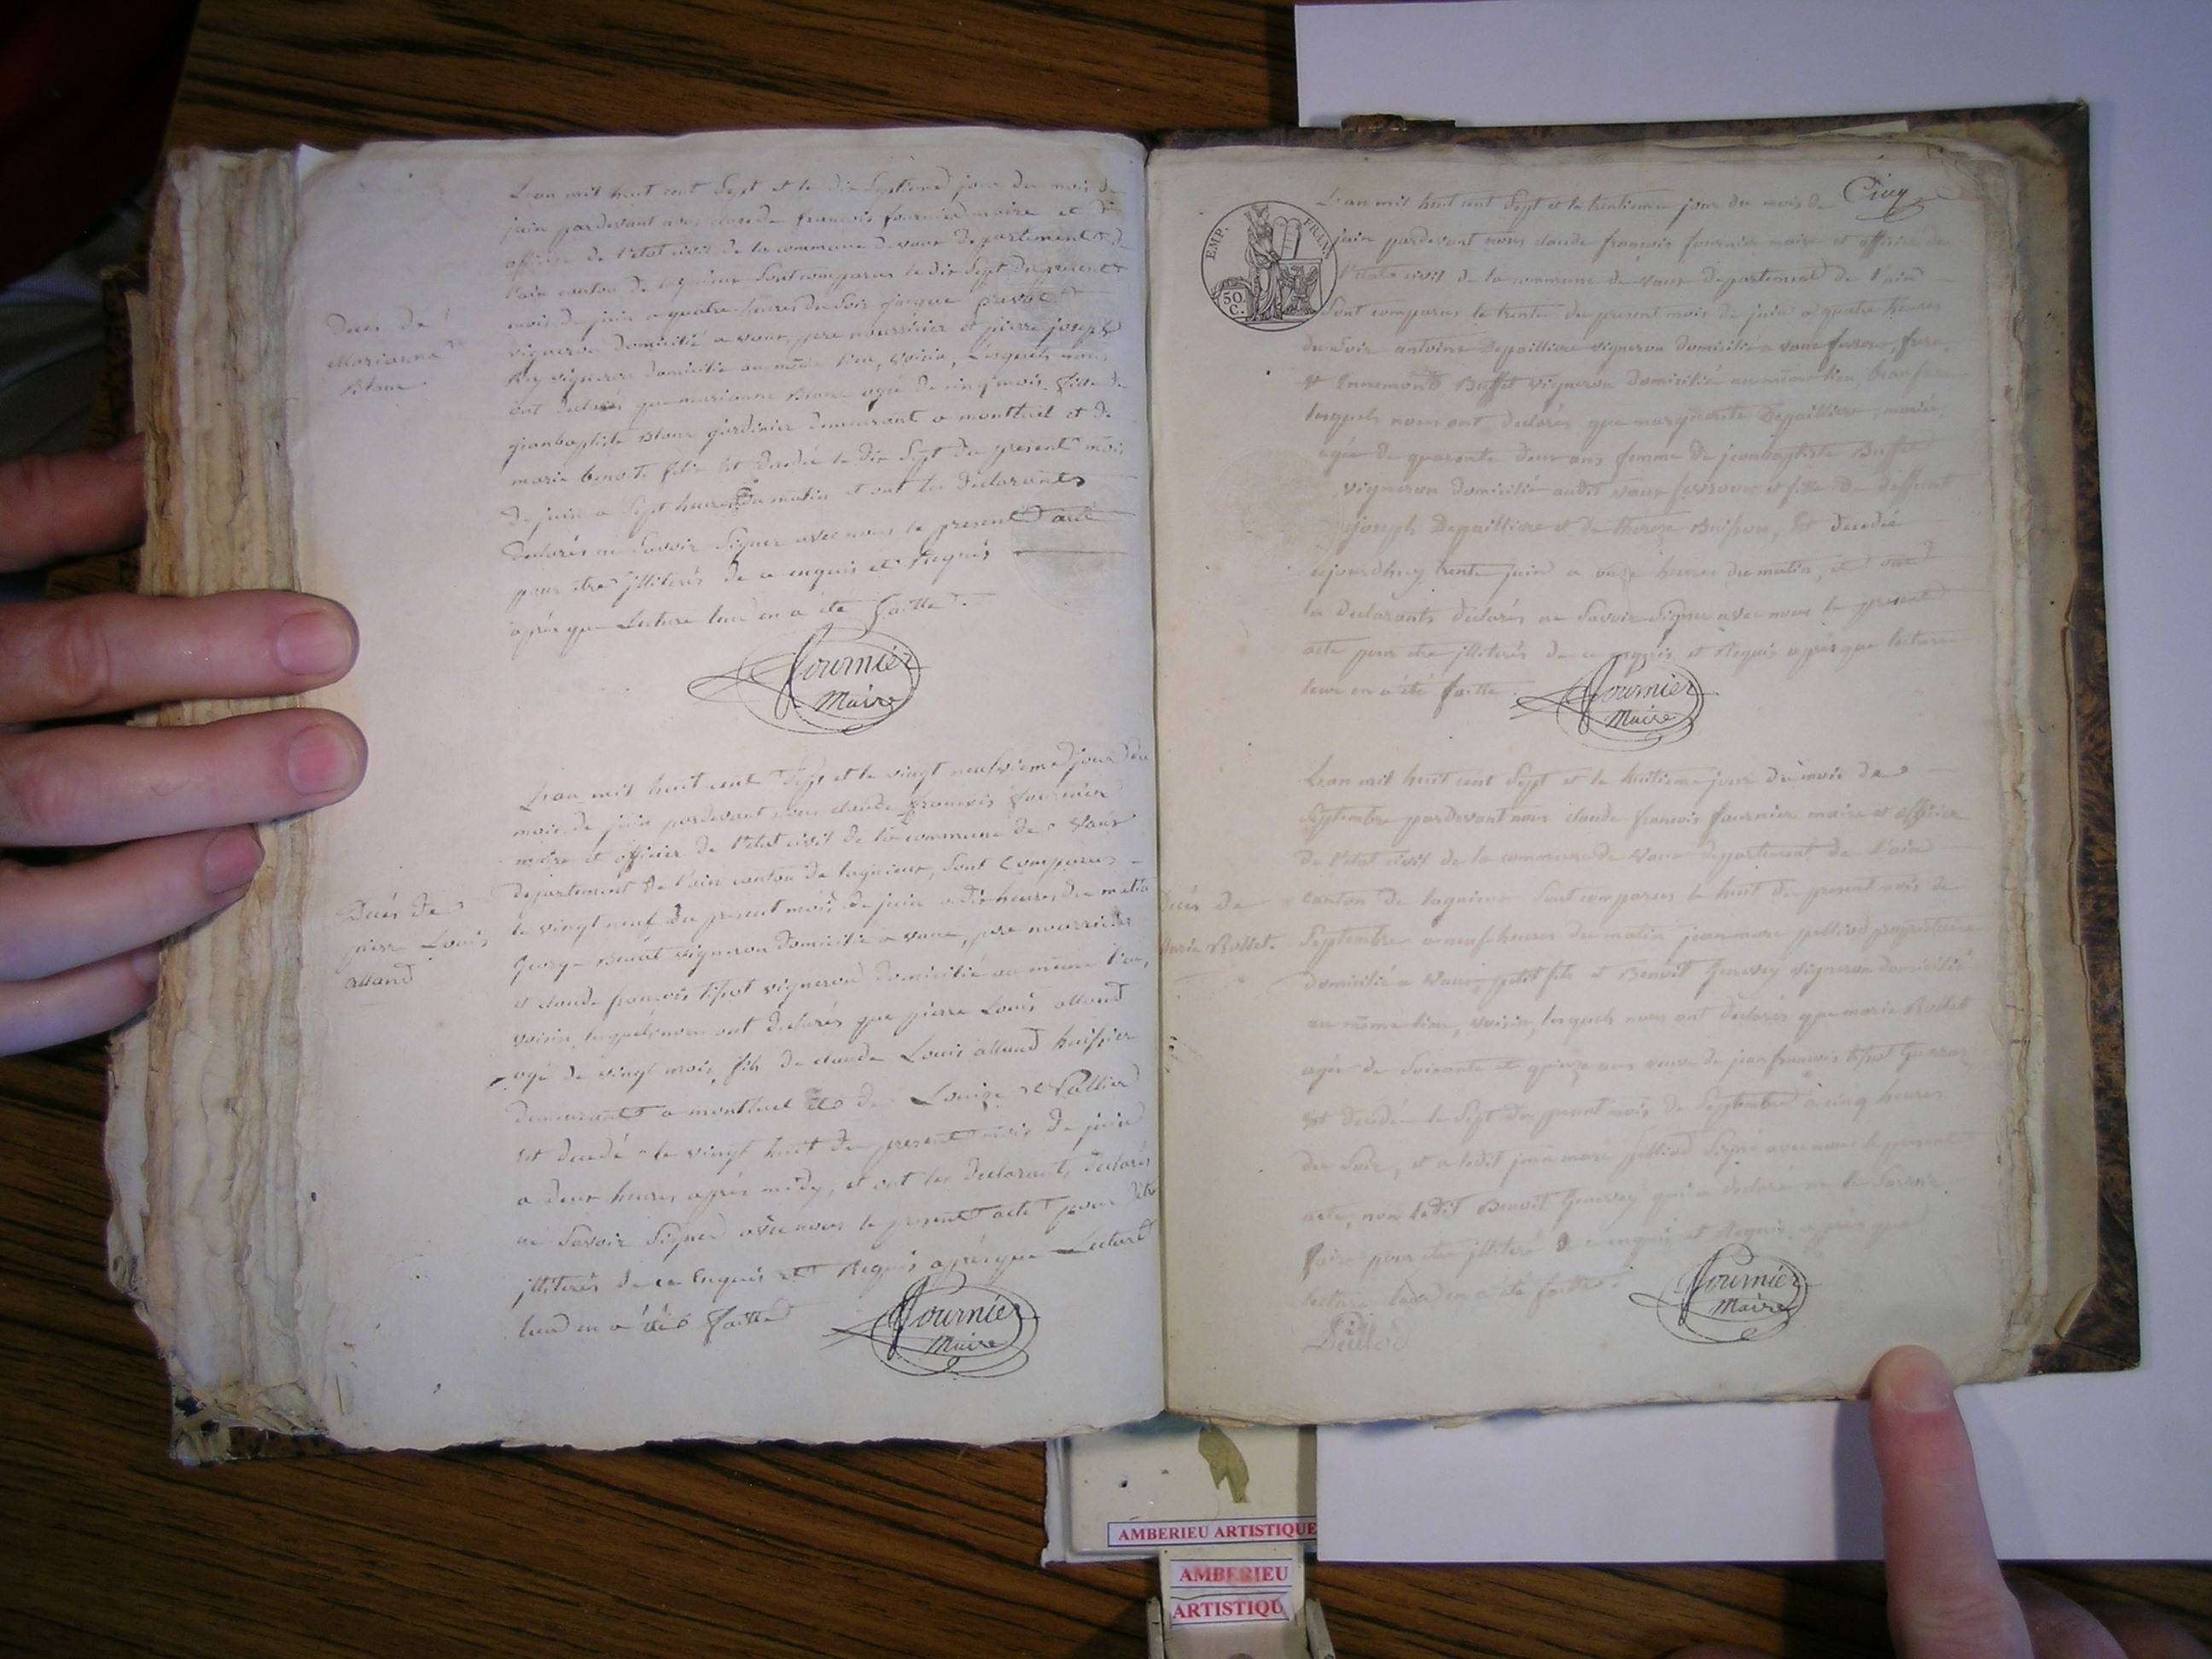 Lan mil huit cent Sept et le dix Septieme jour du mois de
juin pardevant nous claude francois fournier maire et
officier de l'etat civil de la commune de vaux departement de
l'ain canton de lagnieux Sont comparus le dix Sept du present
mois de juin a quatre heures du Soir jacque prevot
vigneron domicilié a vaux, pere nourricier et pierre joseph
Rey vigneron domicilié au même lieu, voisin, Lesquels nous
ont declarés que marianne Blanc agée de cinq mois fille de
jeanbaptiste Blanc jardinier demeurant a montluel et de
marie benoite felix Est decedée le dix Sept du present mois
de juin a Sept heures du matin et ont les declarants
declarés ne Savoir Signer avec nous le present acte
pour etre jlliterés de ce enquis et Requis
après que Lecture leur en a été faitte.
Deces de
Marianne
Blanc.
Fournier
Maire
Lan mil huit cent Sept et le vingt neufvieme jour du
mois de juin pardevant nous claude francois fournier
maire et officier de l'etat civil de la commune de vaux
departement de l'ain canton de lagnieux, Sont Comparus
le vingt neuf du present mois de juin a dix heures du matin
George vigneron domicilié a vaux, pere nourricier
et claude francois tissot vigneron domicilié au même lieu,
voisin, lesquels nous ont declarés que pierre Louis alland
agé de vingt mois, fils de claude Louis alland huissier
demeurant a montluel et de Louise
Est decedé le vingt huit du present mois de juin
a deux heures après midy, et ont les declarants declarés
ne Savoir Signer avec nous le present acte pour être
jlliterés de ce Enquis et Requis après que Lecture
leur en a été faitte
Decés de
pierre Louis
alland
Fournier
Maire
Cinq
EMP. FRAN.
50
C.
Lan mil huit cent Sept et le trentieme jour du mois de
juin pardevant nous claude françois fournier maire et officier de
l'etat civil de la commune de vaux departement de l'ain
Sont comparus le trente du present mois de juin a quatre heures
du Soir antoine Depailliere vigneron domicilié a vaux fevroux frere
et Ennemond Buffet vigneron domicilié au même lieu, beaufrere
lesquels nous ont declarés que marguerite Depailliere, mariée,
agée de quarante deux ans femme de jeanbaptiste Buffet
vigneron domicilié audit vaux fevroux et fille de deffunt
joseph Depailliere et de thereze Buisson, Est decedée
aujourdhuy trente juin a onze heures du matin, et ont
les Declarants declarés ne Savoir Signer avec nous le present
acte pour etre jlliterés de ce enquis et Requis après que lecture
leur en a été faitte.
Fournier
Maire
Lan mil huit cent Sept et le huitieme jour du mois de
Septembre pardevant nous claude françois fournier maire et officier
de l'etat civil de la commune de vaux departement de l'ain
canton de lagnieux Sont comparus le huit du present mois de
Septembre a neuf heures du matin jean marc pelliod proprietaire
domicilié a vaux, petit fils et Benoit Genevey vigneron domicilié
au même lieu, voisin, lesquels nous ont declarés que marie Rollet
agée de Soixante et quinze ans veuve de jeanfrancois tissot
Est decedée le Sept du present mois de Septembre a cinq heures
du Soir, et a ledit jean marc pelliod Signé avec nous le present
acte, non ledit Benoit Genevey qui a declaré ne le Savoir
faire pour etre jlliteré de ce enquis et Requis après que
lecture leur en a été faitte.
Decés de
Marie Rollet.
Fournier
Maire
AMBERIEU ARTISTIQUE
AMBERIEU
ARTISTIQU